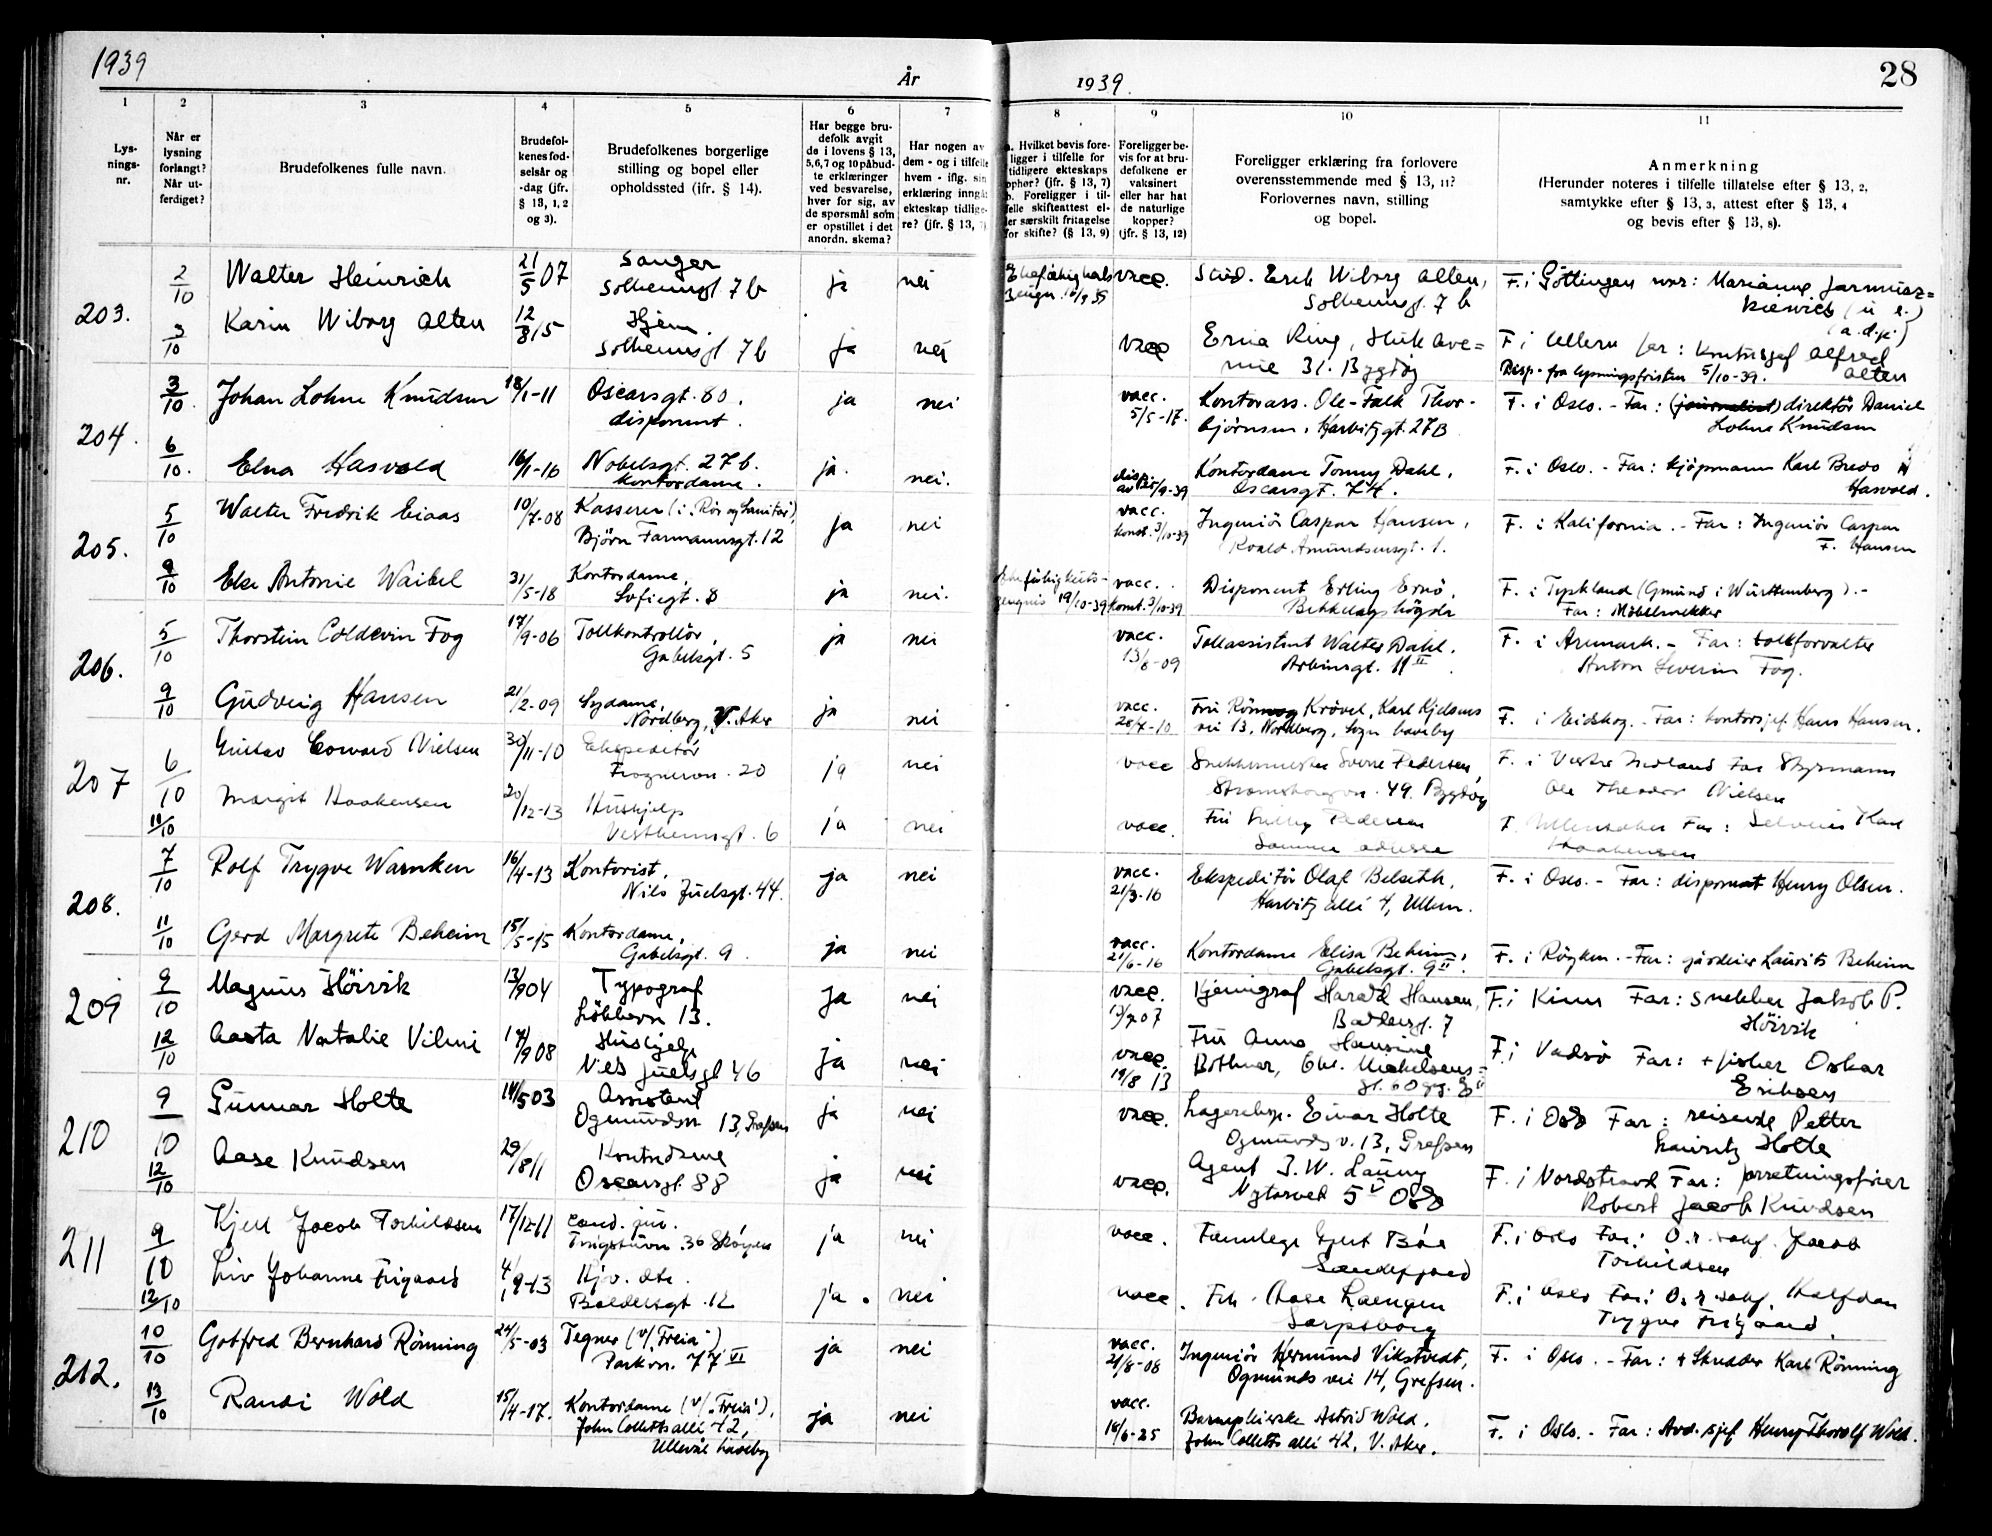 1939
År
1939.
28
1
2
3
4
5
6
7
8
9
10
11
Lys-
nings-
nr.
Når er
lysning
forlangt?
Når ut-
ferdiget?
Brudefolkenes fulle navn.
Brudefol-
kenes fød-
selsår og
-dag (jfr.
§ 13, 1, 2
og 3).
Brudefolkenes borgerlige
stilling og bopel eller
opholdssted (ifr. § 14).
Har begge bru-
defolk avgit
de i lovens § 13,
5,6,7 og 10 påbud-
te erklæringer
ved besvarelse,
hver for sig, av
de spørsmål som
er opstillet i det
anordn. skema?
Har nogen av
dem - og i tilfelle
hvem - iflg. sin
erklæring inngått
ekteskap tidlige-
re? (jfr. § 13, 7)
a. Hvilket bevis fore-
ligger i tilfelle for
tidligere ekteskaps
ophør? (jfr. § 13, 7)
b. Foreligger i til-
felle skifteattest el-
ler særskilt fritagelse
for skifte? (§ 13, 9)
Foreligger be-
vis for at bru-
defolkene er
vaksinert
eller har hat
de naturlige
kopper?
(jfr. § 13, 12)
Foreligger erklæring fra forlovere
overensstemmende med § 13, 11?
Forlovernes navn, stilling
og bopel.
Anmerkning
(Herunder noteres i tilfelle tillatelse efter § 13, 2,
samtykke efter § 13, 3, attest efter § 13, 4
og bevis efter § 13, 8).
203.
2/10 Walter Heinrich 21/5 07 Sanger ja nei vacc. Stud. Erik Wiborg Alten, F. i Göttingen mor: Marianne Jarmusz=
Solheimsgt. 7 b Solheimsgt. 7 b kiewicz
3/10 Karin Wiborg Alten 12/8 15 Hjem. ja nei vacc Erna Ring, Huk ave= F. i Ullern far: kontorsjef Alfred
Solheimsgt 7 b nue 31. Bygdøy Disp. fra lysningsfristen 5/10-39. Alten
204.
3/10. Johan Lohne Knudsen 18/1-11 Oscarsgt. 80. ja nei vacc. Kontorass. Ole-Falk Thor- F. i Oslo. - Far: (journalist) direktör Daniel
disponent. 5/5-17. björnsen, Harbitzgt. 27B Lohne Knudsen
6/10. Elna Hasvold 16/1-16 Nobelsgt. 27 b. ja. nei. Kontordame Tonny Dahl, F. i Oslo. - Far: kjöpmann Karl Bredo
kontordame. Oscarsgt. 74. Hasvold.
205.
5/10 Walter Fredrik Eiaas 10/7-08 Kasserer (i "Rör og Sanitær"), ja nei vacc. Ingeniör Caspar Hansen, F. i Kalifornia. - Far: Ingeniör Caspar
Björn Farmannsgt. 12 konst. 3/10-39 Roald Amundsensgt. 1. F. Hansen
9/10 Else Antonie Waibel 31/5-18 Kontordame, ja nei. vacc. Disponent Erling Ernö, F. i Tyskland (Gmünd i Württemberg). -
Sofiegt. 8 konst. 3/10-39 Bekkelagshögda Far: Möbelsnekker
206.
5/10 Thorstein Coldevin Fog 17/9-06 Tollkontrollör, ja nei vacc. Tollassistent Walter Dahl, F. i Aremark. - Far: tollforvalter
Gabelsgt. 5 13/6-09 Arbinsgt. 11 II Anton Severin Fog.
9/10 Gudveig Hansen 21/2-09 Sydame, ja nei vacc. Krövel, Karl Kjelsens F. i Eidskog. - Far: kontorsjef Hans Hansen.
Nordberg, V. Aker 28/4-10 vei 13, Nordberg, Sogn haveby
207
6/10 Gustav Edward Nielsen 30/11-10 Ekspeditör ja nei vacc Snekkermester Sverre Pedersen, F. i Vestre Moland Far Styrmann
Frognervn. 20 Strømsborgvn. 49. Bygdøy Ole Theodor Nielsen
11/10 Margit Haakensen 20/12-13 Hushjelp ja nei vacc. Fru Pedersen F. Ullensaker Far: Selveier Karl
Vestheimsgt. 6 Samme adresse Haakensen
208.
7/10 Rolf Trygve Warnken 16/4-13 Kontorist, ja nei vacc. Ekspeditör Olaf Belseth, F. i Oslo. - Far: disponent Henry Olsen.
Nils Juelsgt. 44. 21/3-16 Harbitz allé 4, Ullern.
11/10 Gerd Margrete Beheim 15/5-15 Kontordame, ja nei vacc. Kontordame Elisa Beheim, F. i Röyken. - Far: gårdeier Laurits Beheim
Gabelsgt. 9. 21/6-16 Gabelsgt. 9 II.
209
9/10 Magnus Höivik 13/9 04 Typograf ja nei vacc. Kjemigraf Harald Hansen, F. i Kinn Far: snekker Jakob P.
Lökkevn 13. Baldersgt. 7 Höivik
12/10 Aasta Natalie Vilmi 17/9 08 Hushjelp ja nei vacc. Fru Anna Hansine F. i Vadsö Far: + fisker Oskar
Niels Juelsgt 46 19/8 13 Bothner, Chr. Michelsens= Eriksen
gt. 60 opg. E II
210
9/10 Gunnar Holte 14/5 03 Assistent ja nei vacc. Lagereksp. Einar Holte F. i Oslo Far: reisende Petter
Ogmundsv 13, Grefsen Ogmunds v. 13, Grefsen Lauritz Holte
12/10 Aase Knudsen 29/8 11 Kontordame ja nei vacc. Agent J. W. Launy F. i Nordstrand Far: forretningsfører
Oscarsgt. 88 Nytorvet 5 V Oslo Robert Jacob Knudsen
211
9/10 Kjell Jacob Torkildsen 17/12-11 cand. jur. ja nei vacc. Tannlege Gjert Bóe F. i Oslo Far: O.r.sakf. Jacob
Tingstuvn. 36 Skøyen Sandefjord Torkildsen
12/10 Liv Johanne Frigaard 4/9-13 Hjv. dtr. ja. nei vacc. Frk. Aase Laengen F. i Oslo Far: O.r.sakf. Halfdan
Baldersgt. 12 Sarpsborg Trygve Frigaard.
212.
10/10 Gotfred Bernhard Rönning 24/5-03 Tegner (v/ "Freia") ja nei vacc. Ingeniör Hermund Vikstvedt, F. i Oslo. - Far: + Skredder Karl Rönning
Parkvn. 77 VI 21/8-08 Ogmunds vei 14, Grefsen.
13/10 Randi Wold 15/4-17. Kontordame (v/ "Freia"), ja nei vacc. Barnepleierske Astrid Wold, F. i Oslo. - Far: Avd.sjef Henry Thorolf Wold.
John Colletts allé 42, 16/6-25 John Colletts allé 42, V. Aker.
Ullevål haveby